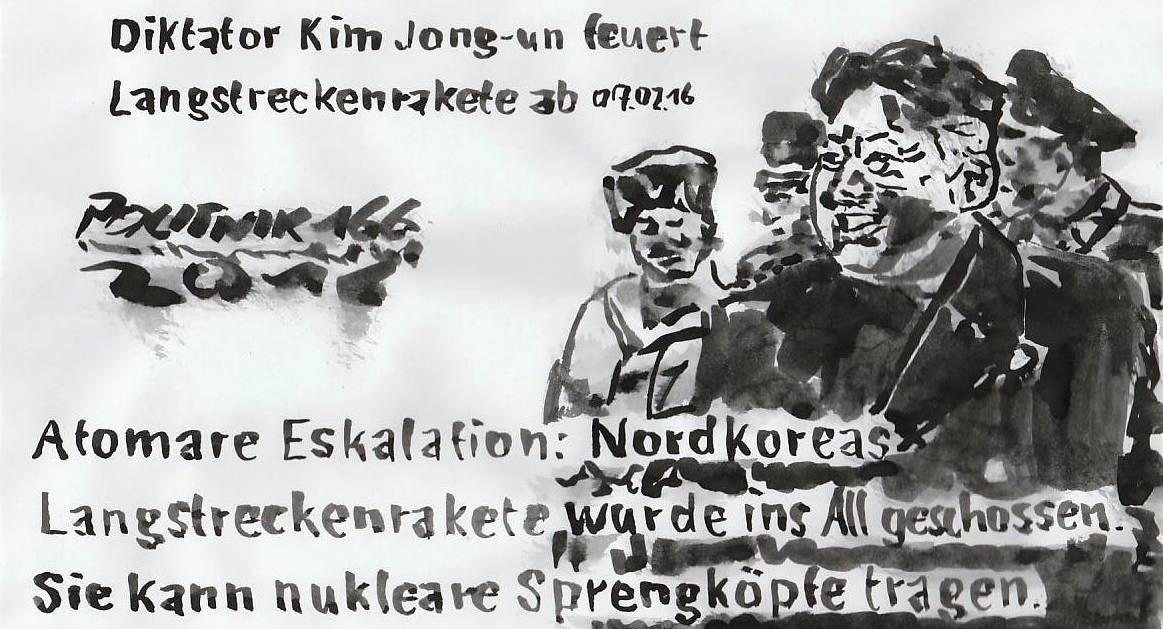 Diktator Kim Jong-un feuert
Langstreckenrakete ab 07.02.16
POLITNIK 166
2016
Atomare Eskalation: Nordkoreas
Langstreckenrakete wurde ins All geschossen.
Sie kann nukleare Sprengköpfe tragen.